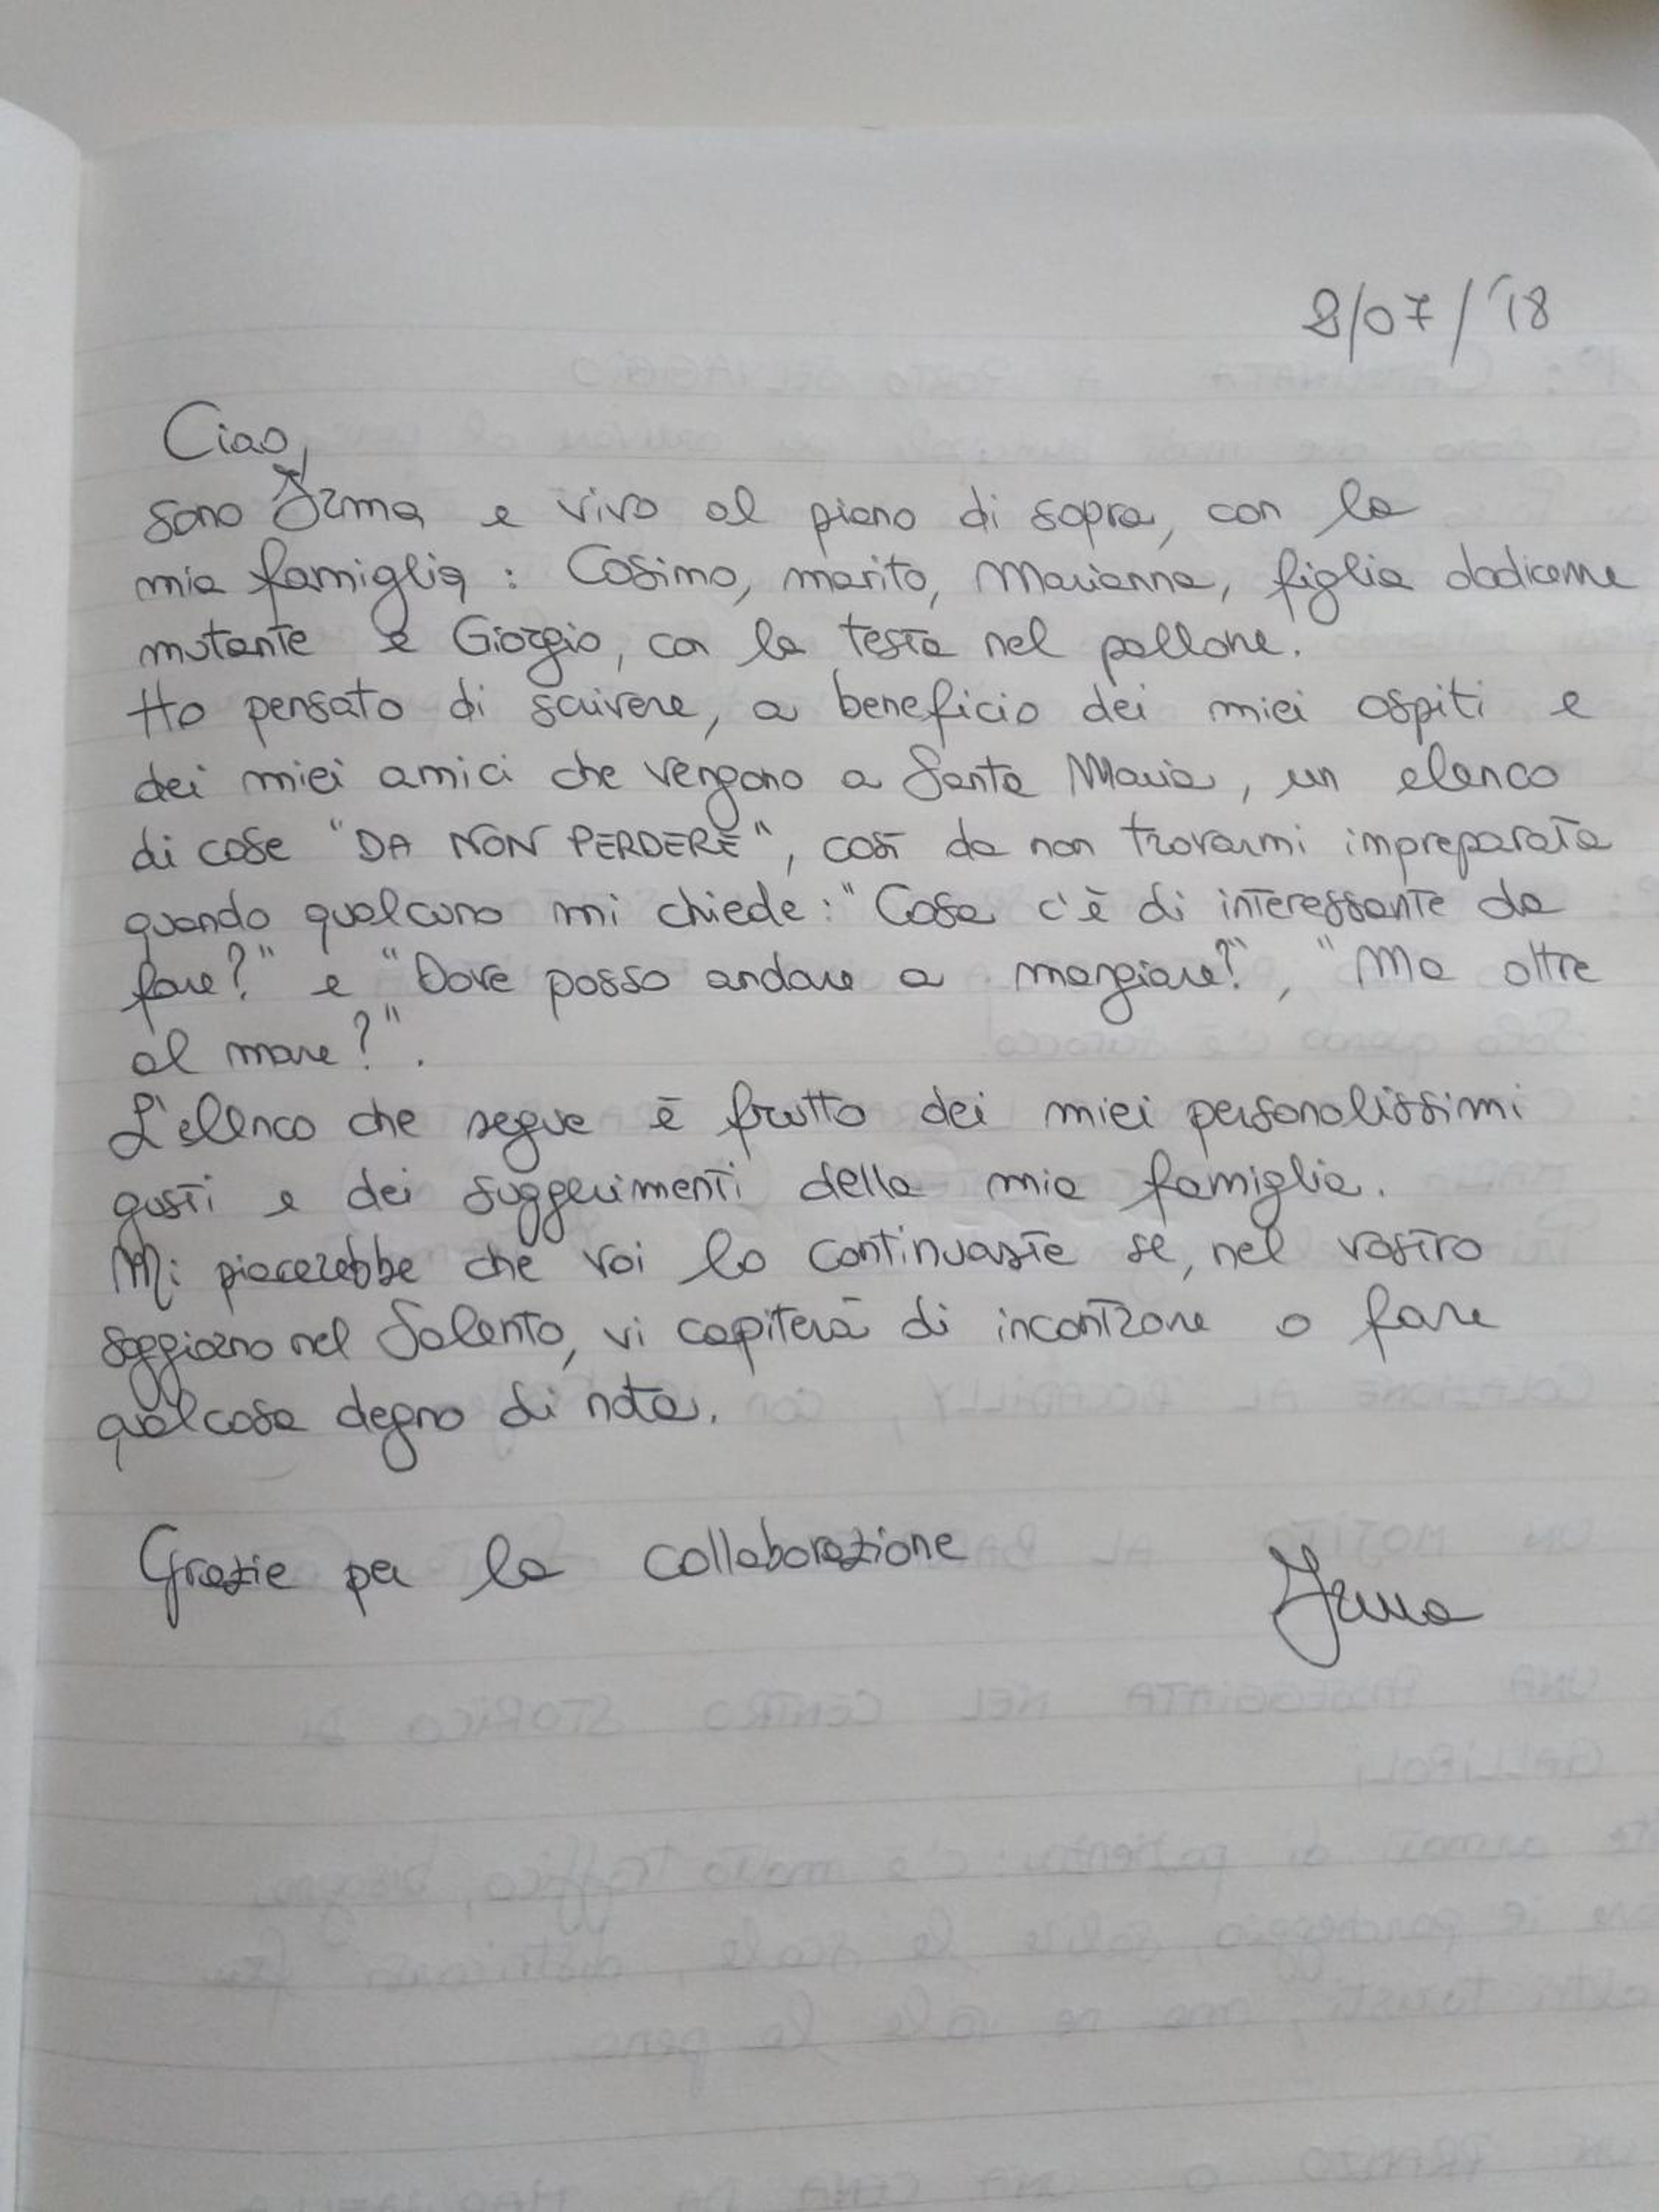 8/07/'18
Ciao,
sono Irma e vivo al piano di sopra, con la
mia famiglia : Cosimo, marito, Marianna, figlia dodicenne
mutante e Giorgio, con la testa nel pallone.
Ho pensato di scrivere, a beneficio dei miei ospiti e
dei miei amici che vengono a Santa Maria, un elenco
di cose "DA NON PERDERE", così da non trovarmi impreparata
quando qualcuno mi chiede: "Cosa c'è di interessante da
fare?" e "Dove posso andare a mangiare?", "Ma oltre
al mare?".
L'elenco che segue è frutto dei miei personalissimi
gusti e dei suggerimenti della mia famiglia.
Mi piacerebbe che voi lo continuaste se, nel vostro
soggiorno nel Salento, vi capiterà di incontrare o fare
qualcosa degno di nota.
Grazie per la collaborazione
Irma